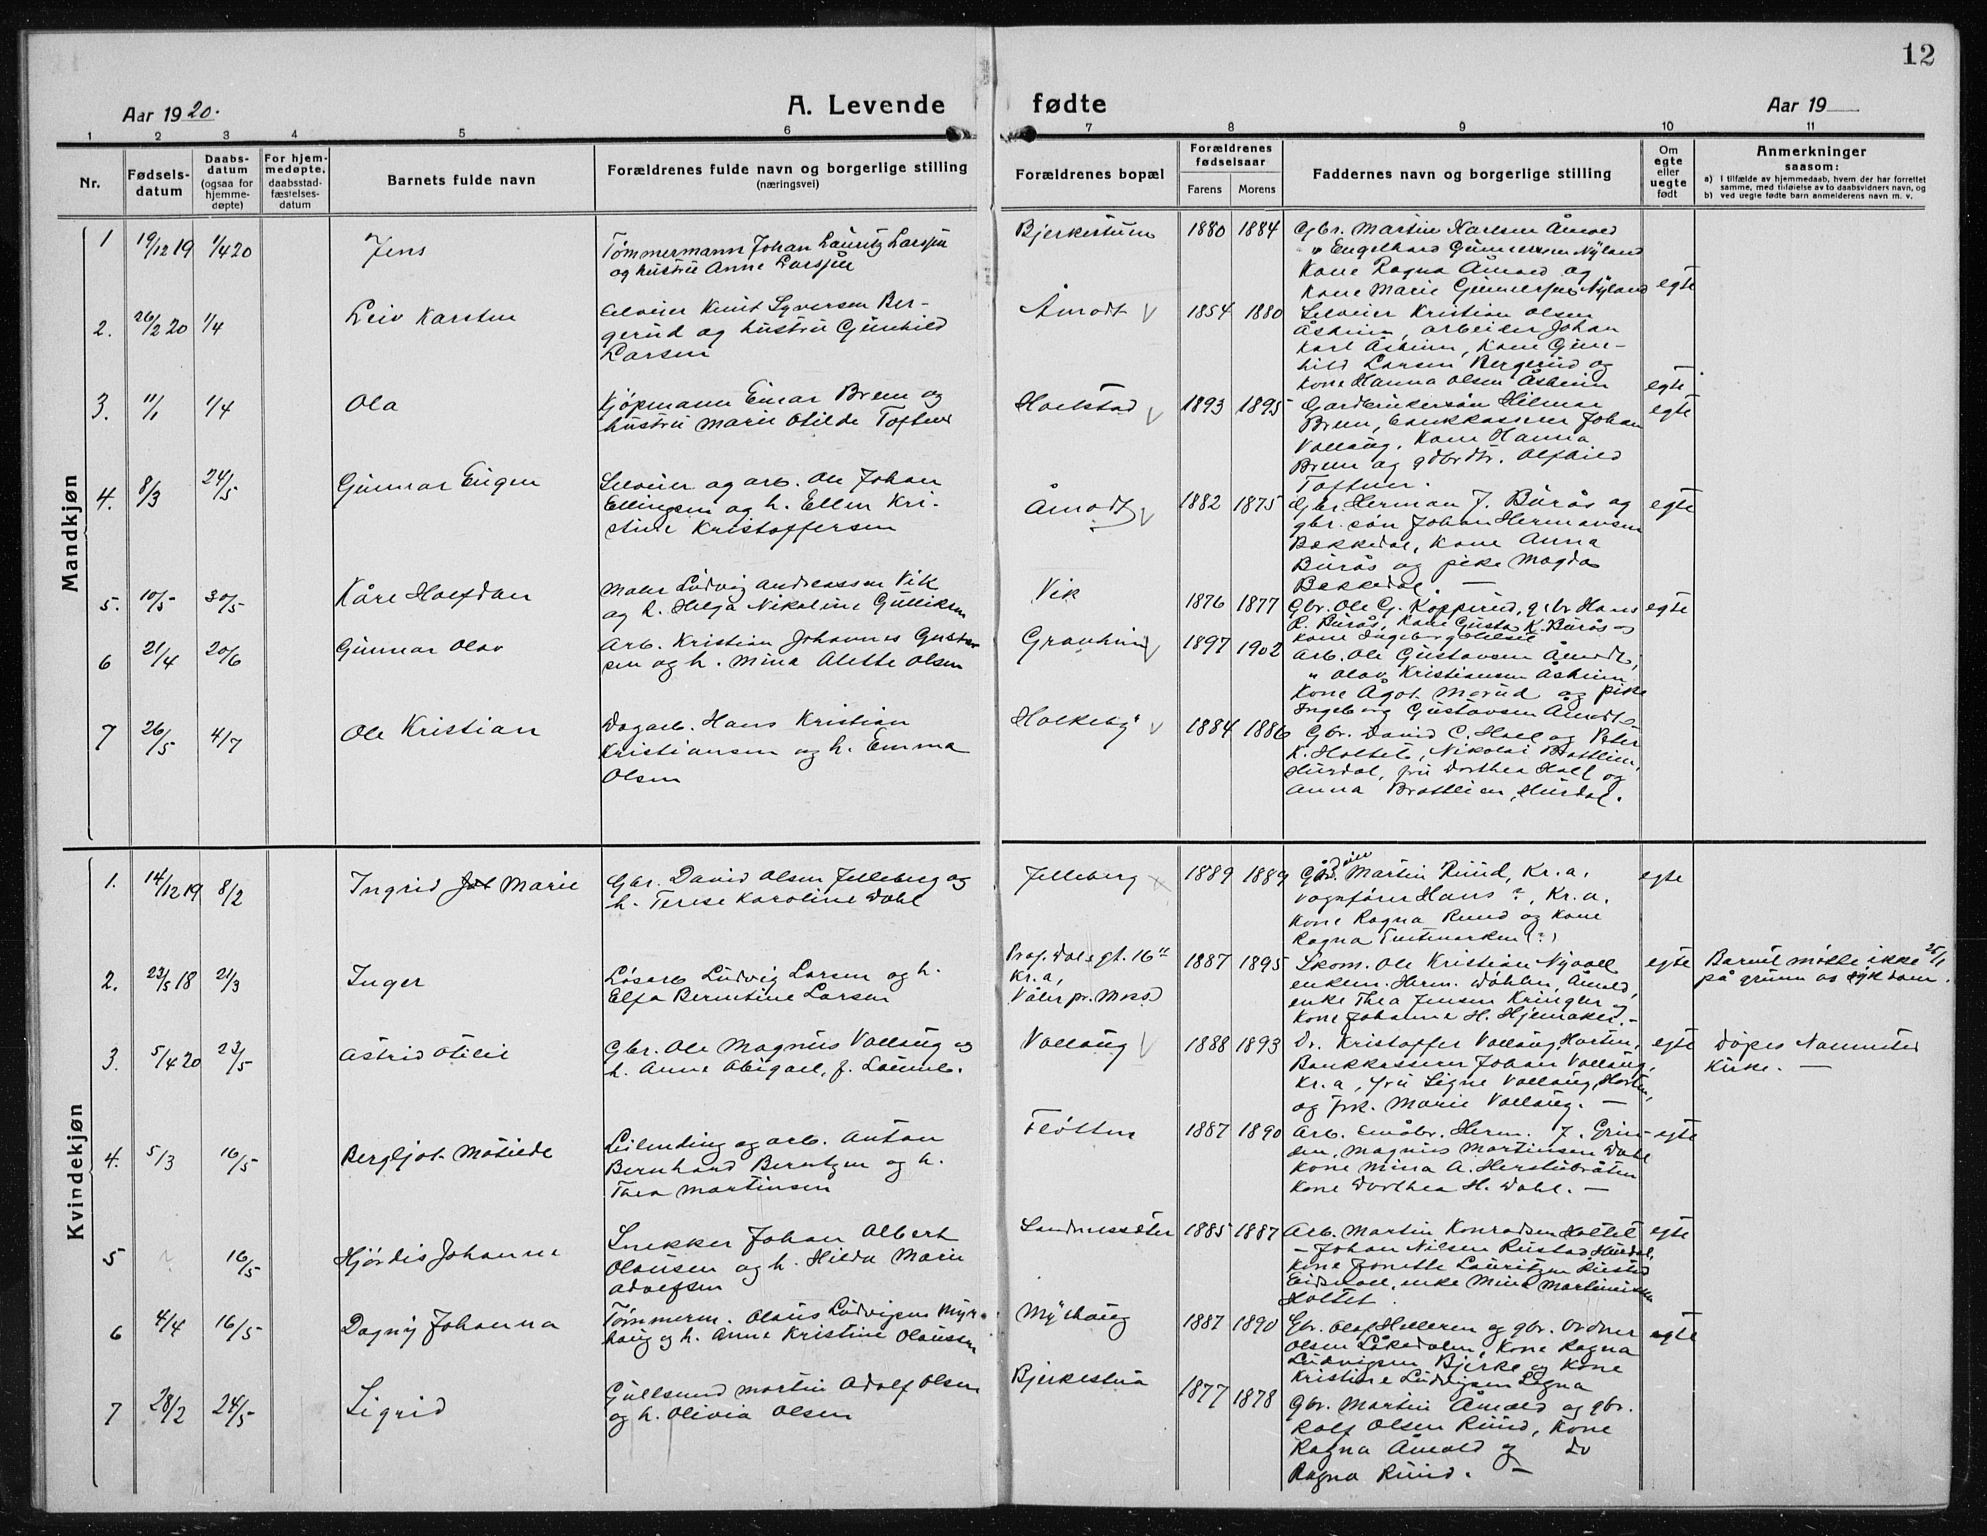 12
Aar 1920.
A. Levende fødte
Aar 19
1 2 3 4 5 6 7 8 9 10 11
Nr.
Fødsels-
datum
Daabs-
datum
(ogsaa for
hjemme-
døpte)
For hjem-
medøpte,
daabsstad-
fæstelses-
datum
Barnets fulde navn
Forældrenes fulde navn og borgerlige stilling
(næringsvei)
Forældrenes bopæl
Forældrenes
fødselsaar
Farens Morens
Faddernes navn og borgerlige stilling
Om
egte
eller
uegte
født
Anmerkninger
saasom:
a) I tilfælde av hjemmedaab, hvem der har forrettet
samme, med tilføielse av to daabsvidners navn, og
b) ved uegte fødte barn anmelderens navn m. v.
Mandkjøn
1 19/12 19 1/4 20 Jens
Tømmermann Johan Lauritz Larsen
og hustru Anne Larsen
Bjerkestuen 1880 1884
Gbr. Martin Karlsen Åmold
" Engelhard Gunnersen Nyland
Kone Ragna Åmold og
Kone Marie Gunnersen Nyland egte
2. 26/2 20 1/4 Leiv Karsten
Selveier Knut Syversen Ber-
gerud og hustru Gunhild
Larsen
Åmodt 1854 1880
Selveier Kristian Olsen
Åsheim, arbeider Johan
Karl Åsheim, Kone Gun-
hild Larsen Bergerud og
Kone Hanna Olsen Åsheim egte
3. 11/1 1/4 Ola
Kjøpmann Einar Breen og
hustru Marie Otilde Toftner
Holstad 1893 1895
Gardbrukersøn Hilmar
Breen, Bankkasserer Johan
Vollaug, Kone Hanna
Breen og gdbrdtr. Alfhild
Toftner. egte
4. 8/3 24/5 Gunnar Eugen
Selveier og arb. Ole Johan
Ellingsen og h. Ellen Kri-
stine Kristoffersen
Åmodt 1882 1875
Gbr. Herman J. Burås og
gbr. søn Johan Hermansen
Bekkedal, Kone Anna
Burås og pike Magda
Bekkedal. — egte
5. 10/5 30/5 Kåre Halfdan
Maler Ludvig Andreassen Vik
og h. Helga Nikoline Gulliksen
Vik 1876 1877
Gbr. Ole G. Kopperud, gbr Hans
R. Burås, Kone Gusta K. Burås og
Kone Ingeborg egte
6 21/4 20/6 Gunnar Olav
Arb. Kristian Johannes Gustav
sen og h. Mina Alette Olsen
Granheim 1897 1902
Arb. Ole Gustavsen Åmodt,
" Olav Kristiansen Åsheim
Kone Ågot Morud og pike
Ingeborg Gustavsen Åmodt
7 26/5 4/7 Ole Kristian
Dagarb. Hans Kristian
Kristiansen og h. Emma
Olsen
Holkeby 1884 1886
Gbr. David C. Holl og Peter
K. Holtet, Nikolai Brattlien,
Hurdal, fru Dorthea Holl og
Anna Brattlien, Hurdal.
Kvindekjøn
1. 14/12 19 8/2 Ingrid Marie
Gbr. David Olsen Jelleberg og
h. Terese Karoline Dahl
Jelleberg 1889 1889
Martin Ruud, Kr.a,
vognfører Hans ?, Kr.a.
Kone Ragna Ruud og Kone
Ragna Tuitmarken (?) egte
2. 23/5 18 21/3 Inger
Løsarb Ludvig Larsen og h.
Elfa Berntine Larsen
Prof. Dals gt. 16
Kr.a,
Våler pr. Moss
1887 1895
Skom. Ole Kristian Nyvoll
enkem. Herm. Dahlen, Åmold,
enke Thea Jensen Kringler og
Kone Johanne H. Hjemaker. — egte
Barnet møtte ikke 25/1
på grunn av sykdom.
3. 5/4 20 23/5 Astrid Otilie
Gbr. Ole Magnus Vollaug og
h. Anne Abigael, f.
Vollaug 1888 1893
Dr. Kristoffer Vollaug, Horten,
Bankkasserer Johan Vollaug,
Kr.a, fru Signe Vollaug, Horten,
og frk. Marie Vollaug. — egte
Døpes Nannestad
Kirke. —
4. 5/3 16/5 Bergljot Matilde
Leilending og arb. Anton
Bernhard Berntzen og h.
Thea Martinsen
Fløtten 1887 1890
Arb. Småbr. Herm. J. Grin-
den, Magnus Martinsen Dahl
Kone Mina A. Herstubråten
Kone Dorthea H. Dahl. — egte
5 16/5 Hjørdis Johanne
Snekker Johan Albert
Olausen og h. Hilda Marie
Adolfsen
Sandnessæter 1885 1887
Arb. Martin Konradsen Holtet
— Johan Nilsen Rustad Hurdal,
Kone Jonette Lauritzen Rustad
Eidsvoll, enke Mina Martinussen
Holtet. egte
6 4/4 16/5 Dagny Johanna
Tømmerm. Olaus Ludvigsen Myr-
haug og h. Anne Kristine Olaussen
Myrhaug 1887 1890
Gbr. Olaf Helleren og gbr. Ordner
Olsen Løkedalen, Kone Ragna
Ludvigsen Bjerke og Kone
Kristine Ludvigsen Legna egte
7 28/2 24/5 Sigrid
Gullsmed Martin Adolf Olsen
og h. Olivia Olsen
Bjerkestua 1877 1878
Gbr. Martin Åmold og gbr.
Rolf Olsen Ruud, Kone
Ragna Åmold og do
Ragna Ruud. —